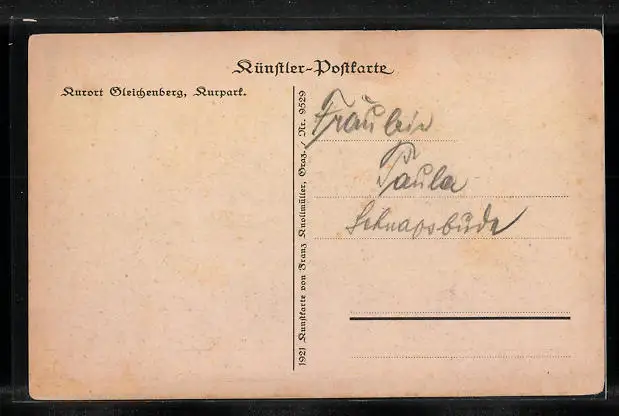 Künstler-Postkarte
Kurort Gleichenberg, Kurpark.
1921 Kunstkarte von Franz Knollmüller, Graz. Nr. 9529
Fräulein
Paula
Schnapsbude